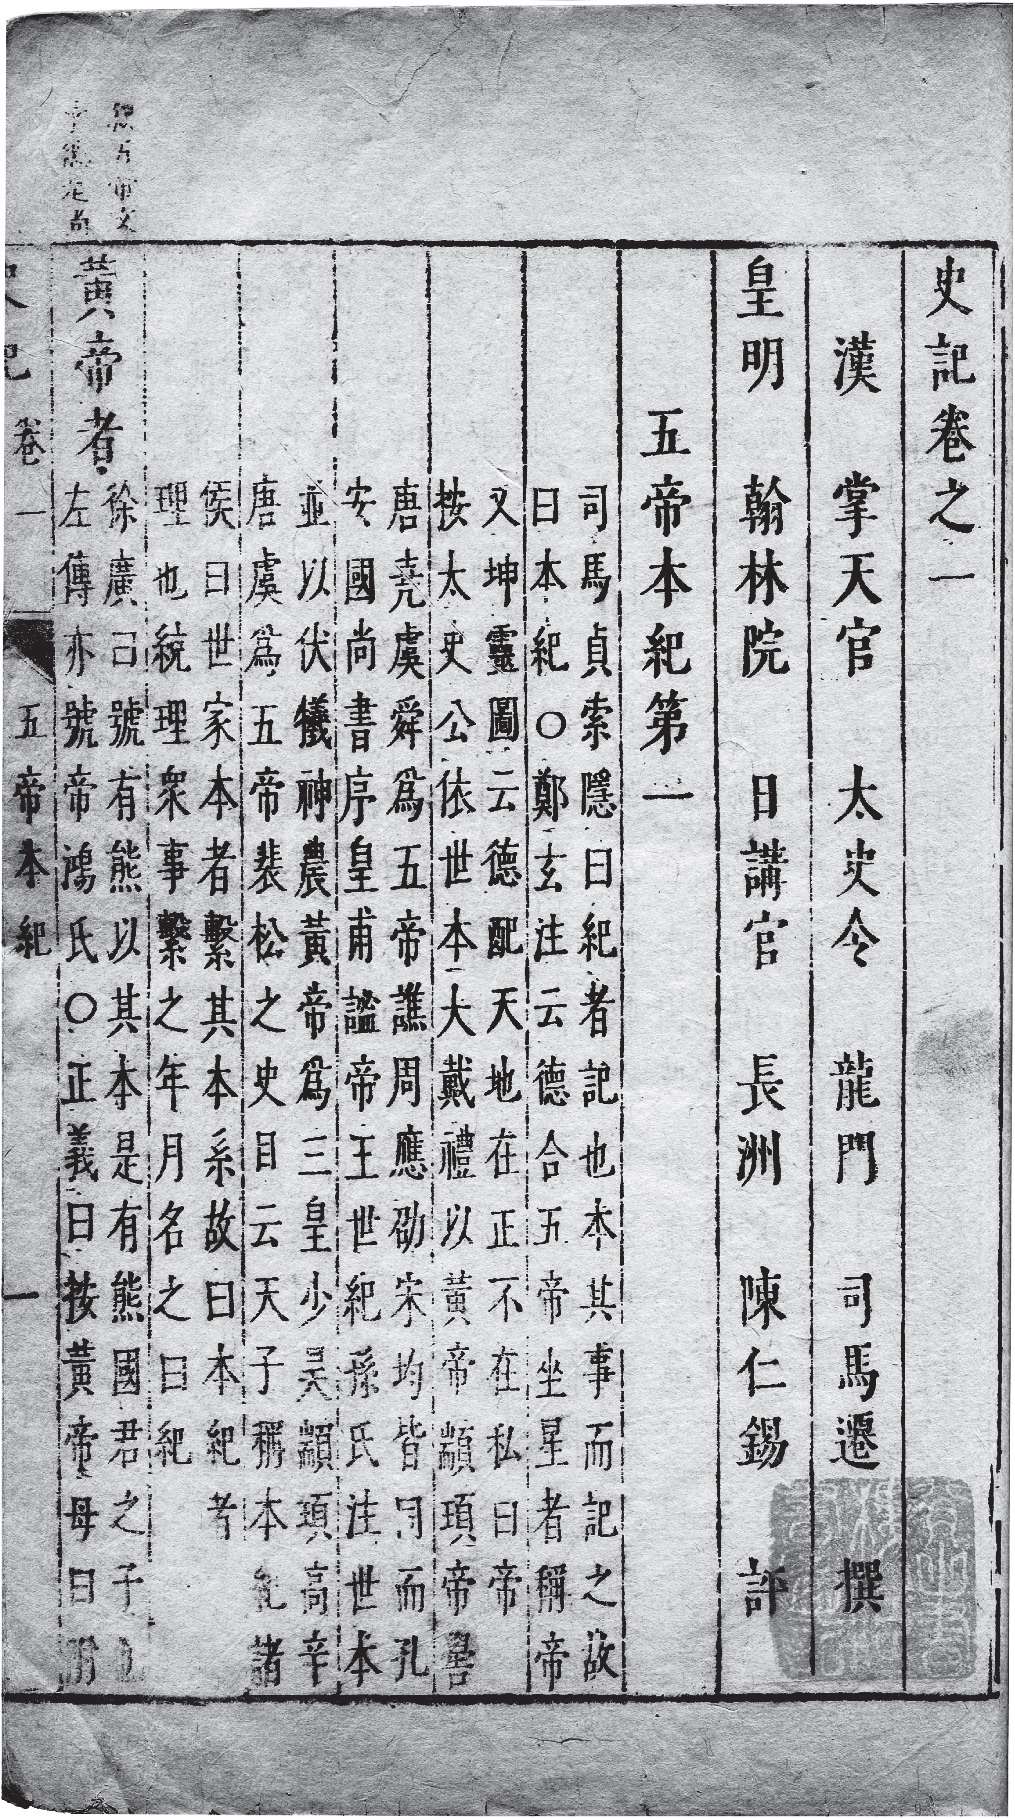 史記卷之一
漢 掌天官 太史令 龍門 司馬遷 撰
皇明 翰林院 日講官 長洲 陳仁錫 評
五帝本紀第一
司馬貞索隱曰紀者記也本其事而記之故
曰本紀○鄭玄注云德合五帝坐星者稱帝
又坤靈圖云德配天地在正不在私曰帝
按太史公依世本大戴禮以黃帝顓頊帝嚳
唐堯虞舜為五帝譙周應劭宋均皆同而孔
安國尚書序皇甫謐帝王世紀孫氏注世本
並以伏犧神農黃帝為三皇少昊顓頊高辛
唐虞為五帝裴松之史目云天子稱本紀諸
侯曰世家本者繫其本系故曰本紀者
理也統理眾事繫之年月名之曰紀
黃帝者
徐廣曰號有熊以其本是有熊國君之子
左傳亦號帝鴻氏○正義曰按黃帝母曰
史記 卷一 五帝本紀 一